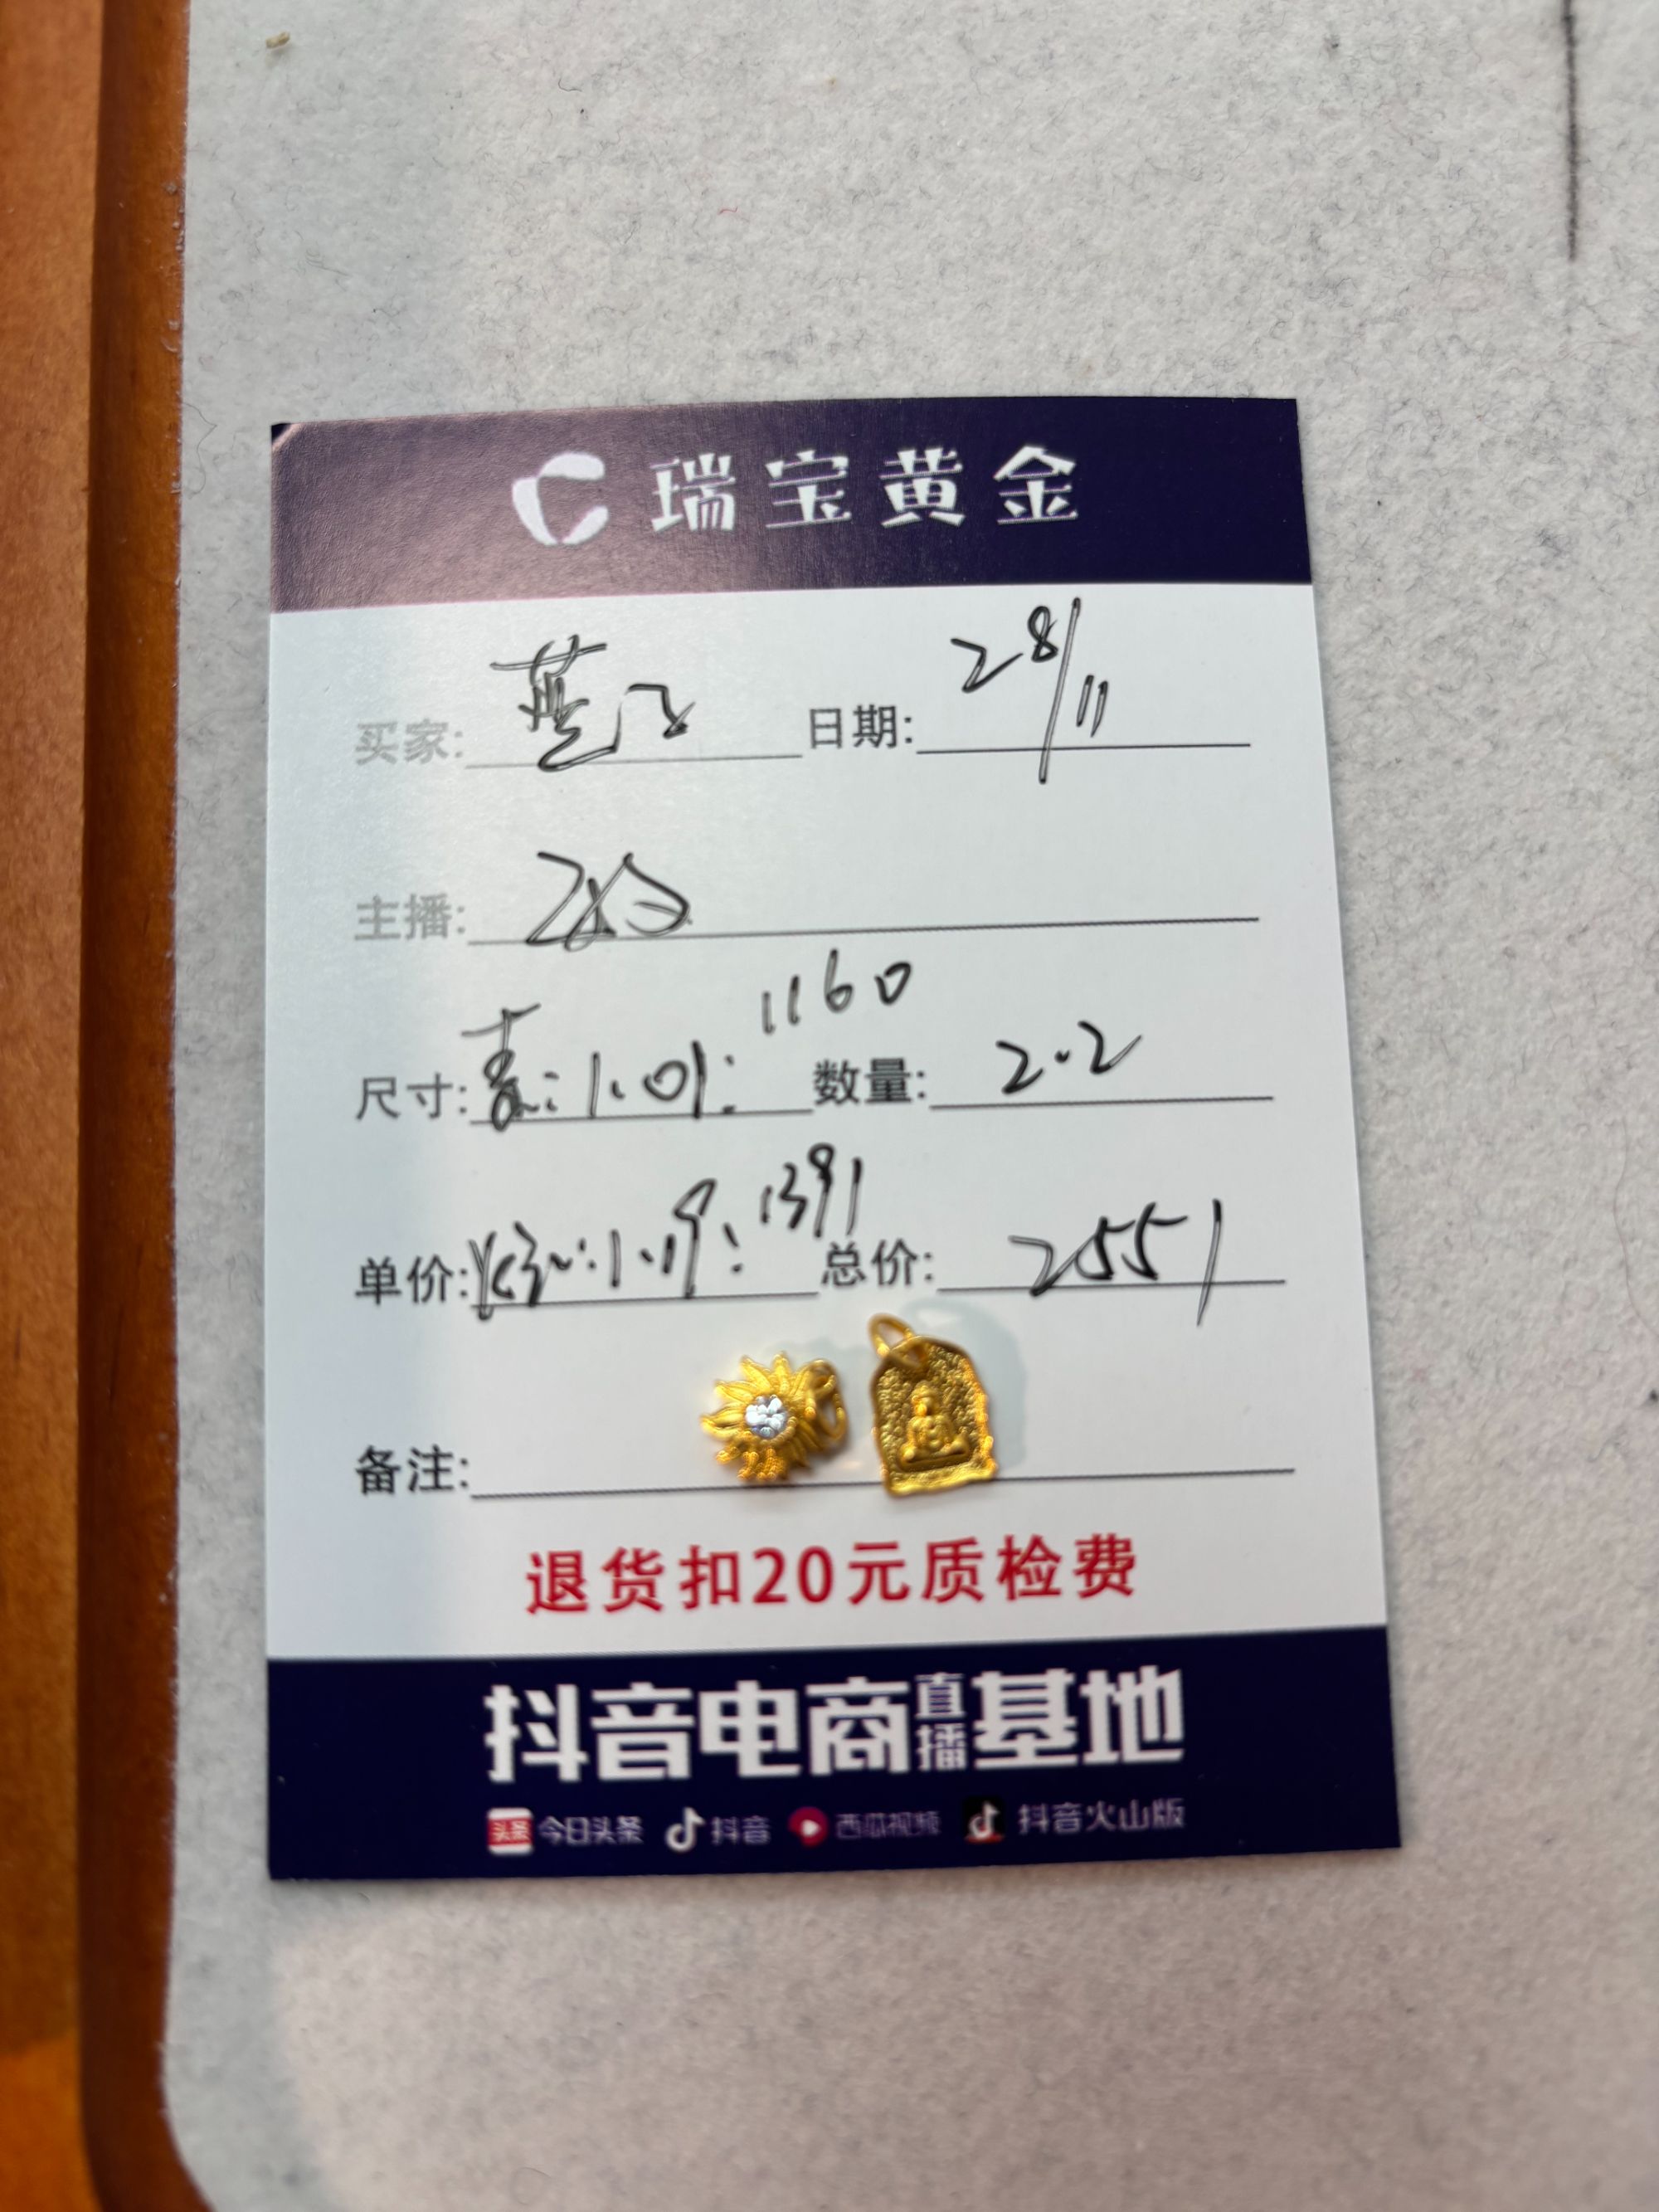 瑞宝黄金
买家: 日期: 28/11
主播:
1160
尺寸: : 1.01: 数量: 2.2
1391
单价: : 1.19: 总价: 2551
备注:
退货扣20元质检费
抖音电商直播基地
头条 今日头条 抖音 西瓜视频 抖音火山版